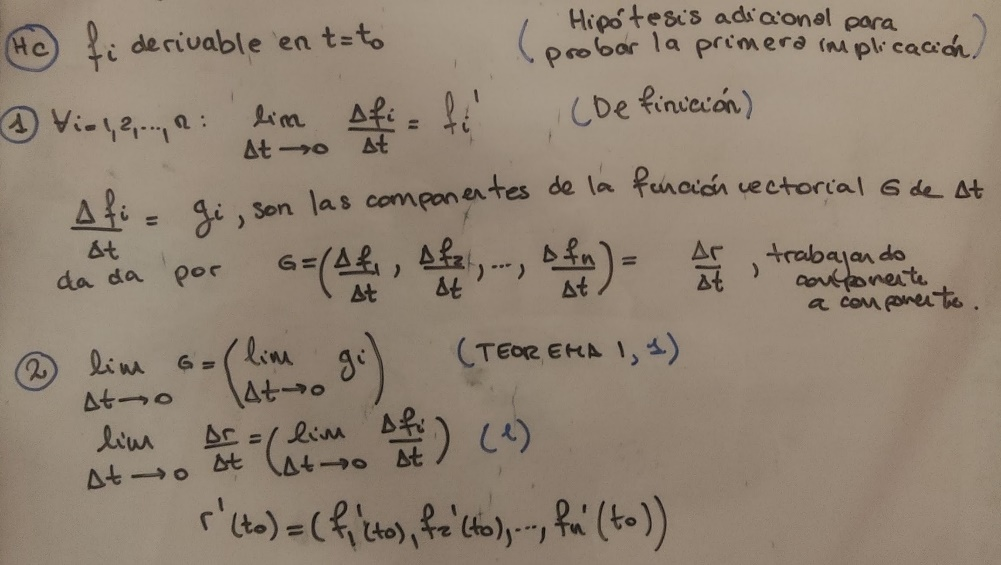 Hc fi derivable en t=to (Hipótesis adicional para
probar la primera implicación)
1 ∀i=1,2,...,n: lim Δt→0 Δfi/Δt = fi' (Definición)
Δfi/Δt = gi, son las componentes de la función vectorial G de Δt
dada por G=(Δf1/Δt, Δf2/Δt, ..., Δfn/Δt) = Δr/Δt, trabajando
componente
a componente.
2 lim Δt→0 G = (lim Δt→0 gi) (TEOREMA 1, 1)
lim Δt→0 Δr/Δt = (lim Δt→0 Δfi/Δt) (1)
r'(to) = (f1'(to), f2'(to), ..., fn'(to))